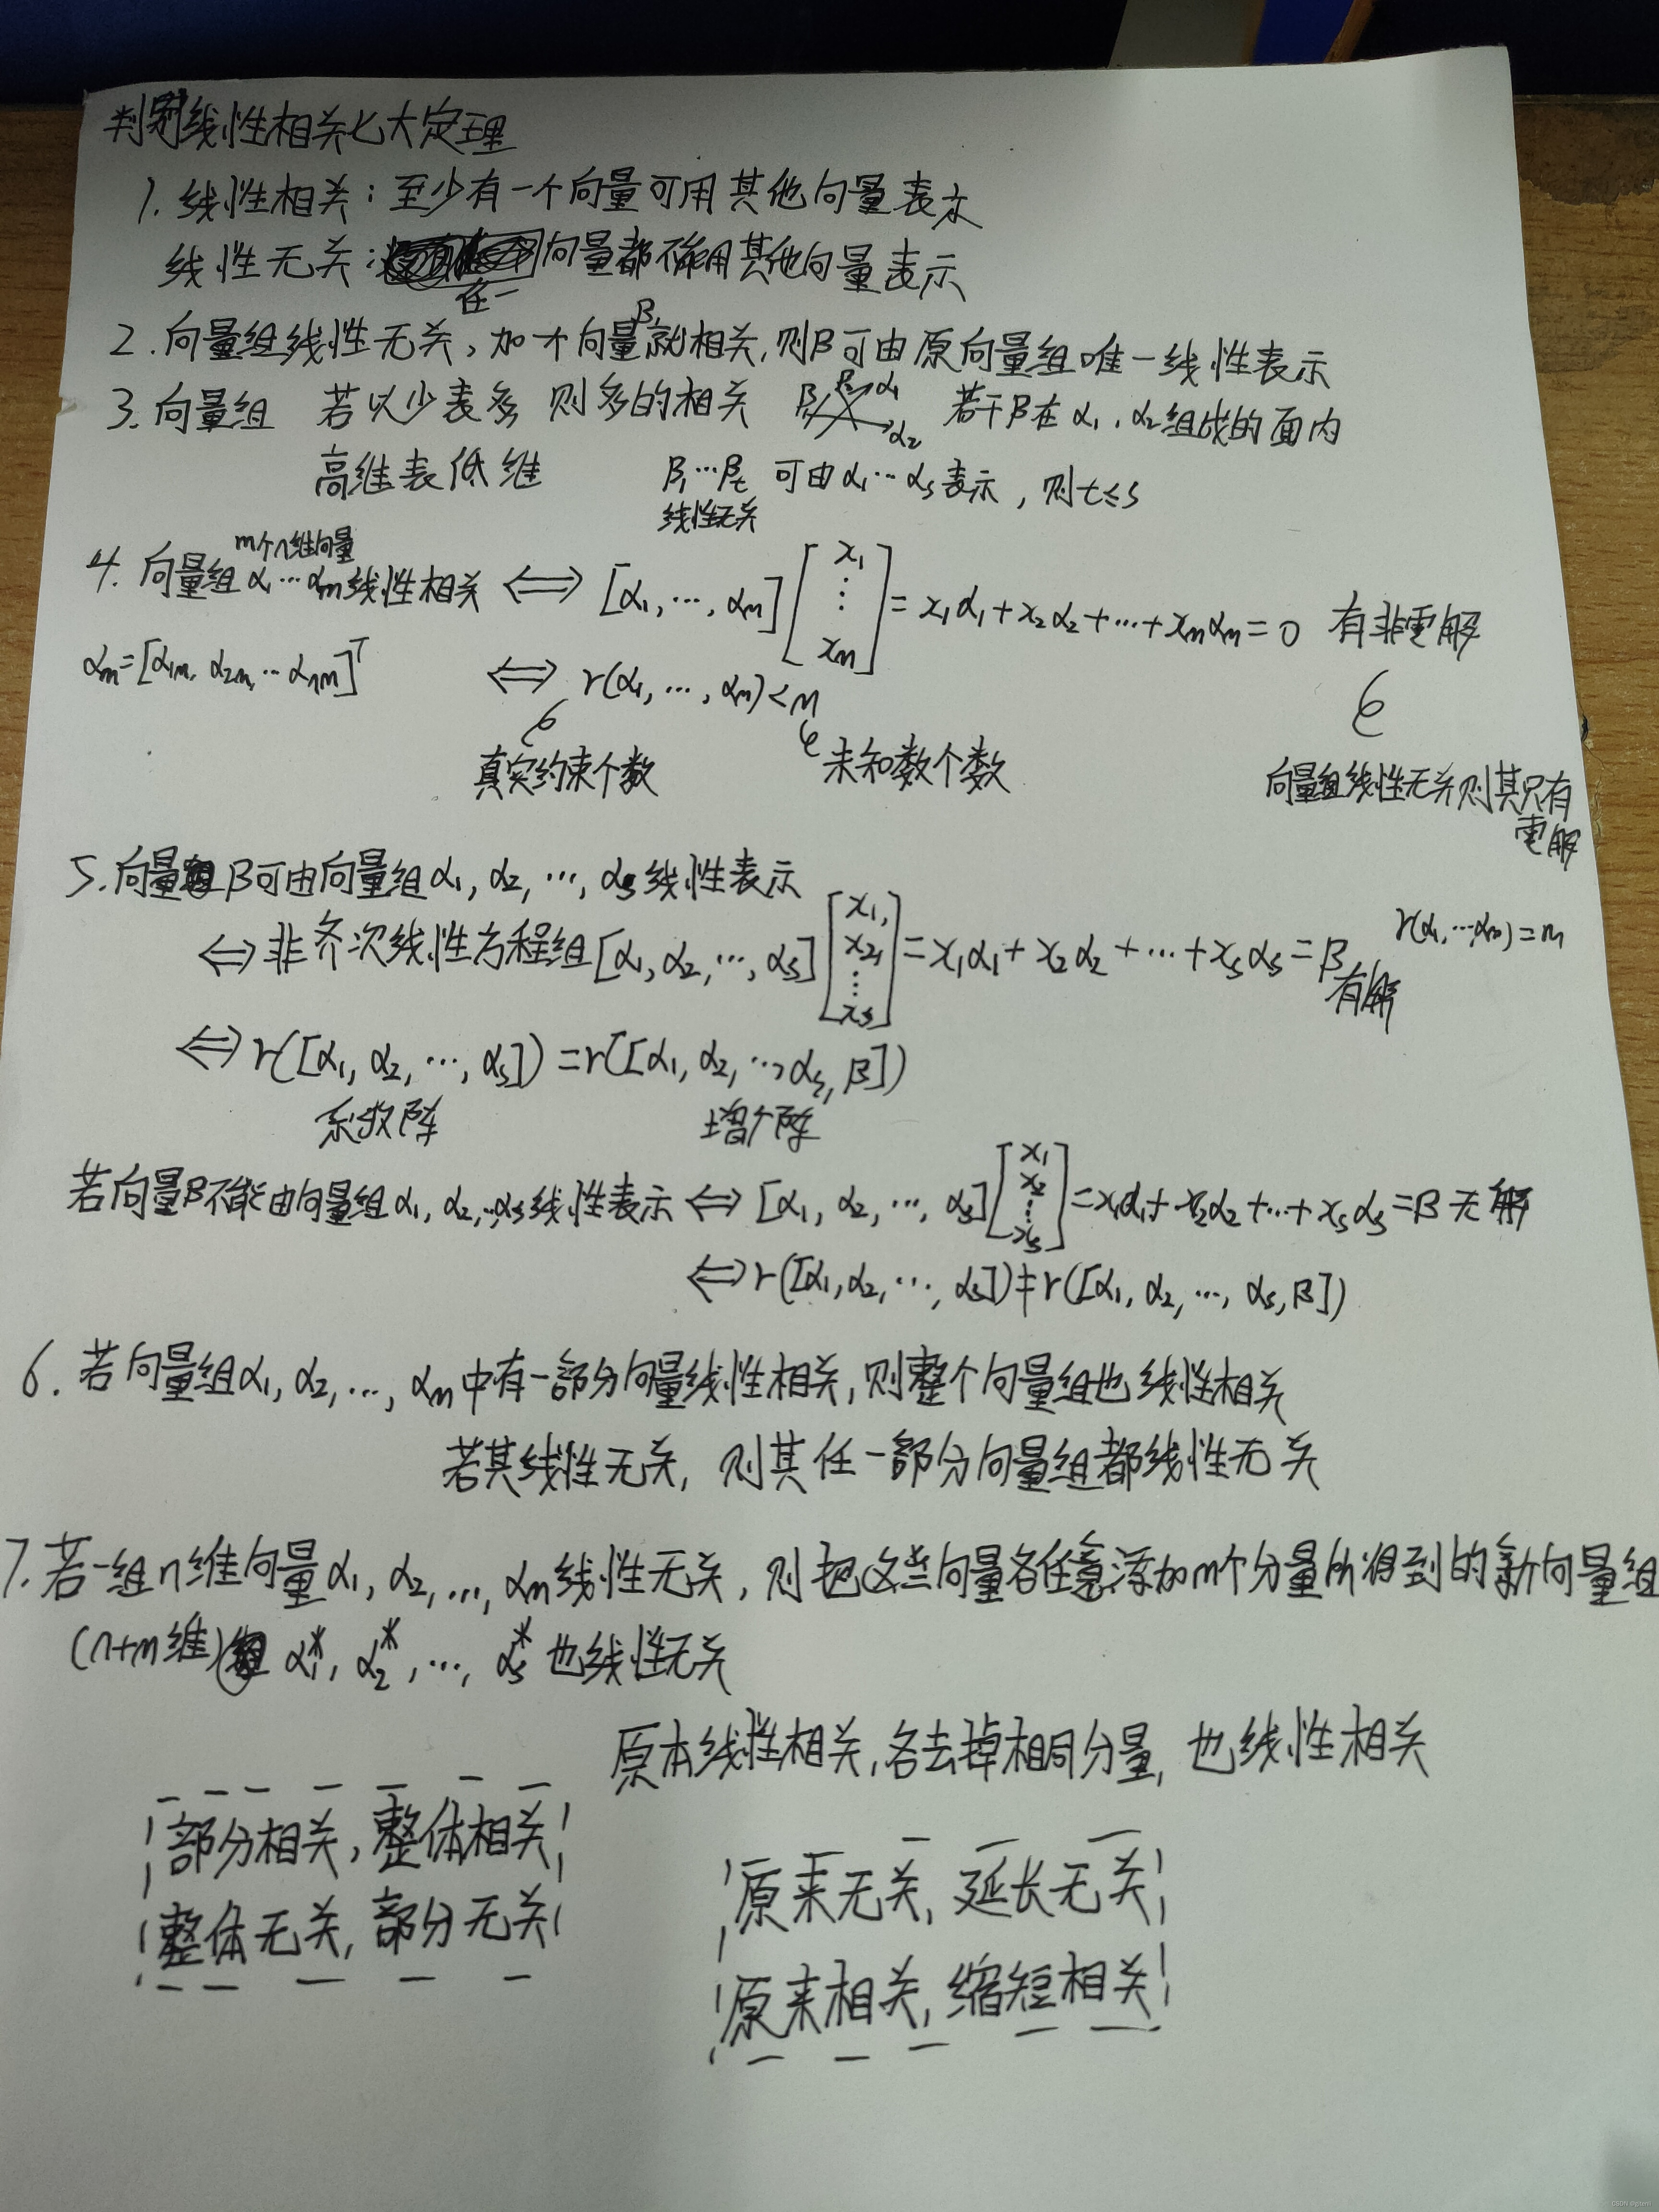 判别线性相关七大定理
1. 线性相关:至少有一个向量可用其他向量表示
线性无关:任一向量都不能用其他向量表示
2. 向量组线性无关,加个向量β就相关,则β可由原向量组唯一线性表示
3. 向量组 若以少表多 则多的相关 β₁ β₂ α₁ α₂ 若干β在α₁,α₂组成的面内
高维表低维 β₁…βt 可由α₁…αs表示,则t≤s
线性无关
m个n维向量
4. 向量组α₁…αm线性相关 ⟺ [α₁,…,αm][x₁ ⋮ xm]=x₁α₁+x₂α₂+…+xmαm=0 有非零解
αm=[α1m, α2m, …αnm]ᵀ ⟺ r(α₁,…,αm)<m
真实约束个数 未知数个数 向量组线性无关则其只有
零解
5. 向量组β可由向量组α₁,α₂,…,αs线性表示
⟺非齐次线性方程组[α₁,α₂,…,αs][x₁, x₂, ⋮ xs]=x₁α₁+x₂α₂+…+xsαs=β有解 r(α₁,…,αm)=m
⟺r([α₁,α₂,…,αs])=r([α₁,α₂,…,αs,β])
系数阵 增广阵
若向量β不能由向量组α₁,α₂,…αs线性表示⟺[α₁,α₂,…,αs][x₁ x₂ ⋮ xs]=x₁α₁+x₂α₂+…+xsαs=β无解
⟺r([α₁,α₂,…,αs])≠r([α₁,α₂,…,αs,β])
6. 若向量组α₁,α₂,…,αm中有一部分向量线性相关,则整个向量组也线性相关
若其线性无关,则其任一部分向量组都线性无关
7. 若一组n维向量α₁,α₂,…,αm线性无关,则把这些向量各任意添加m个分量所得到的新向量组
(n+m维)组 α₁*,α₂*,…,αs* 也线性无关
原本线性相关,各去掉相同分量,也线性相关
部分相关,整体相关
整体无关,部分无关
原来无关,延长无关
原来相关,缩短相关